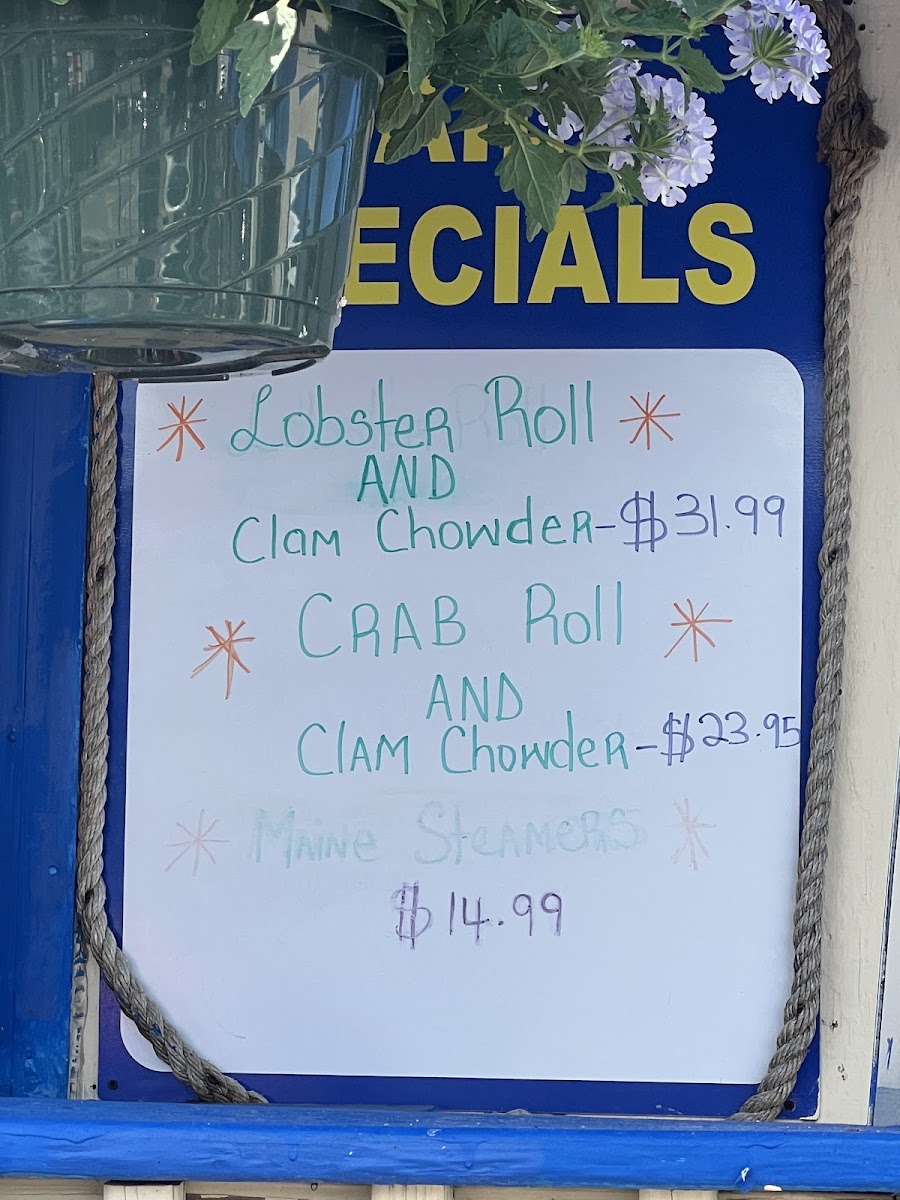 ECIALS
Lobster Roll
AND
Clam Chowder-$31.99
CRAB Roll
AND
ClAM Chowder-$23.95
Maine Steamers
$14.99